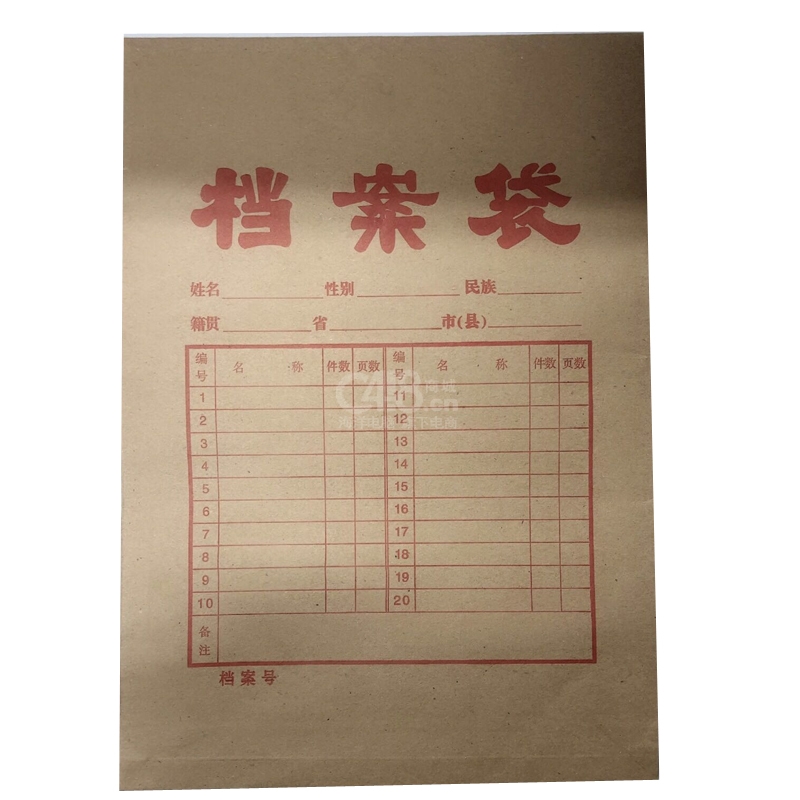 档案袋
姓名 性别 民族
籍贯 省 市(县)
编号 名 称 件数 页数 编号 名 称 件数 页数
1 11
2 12
3 13
4 14
5 15
6 16
7 17
8 18
9 19
10 20
备注
档案号